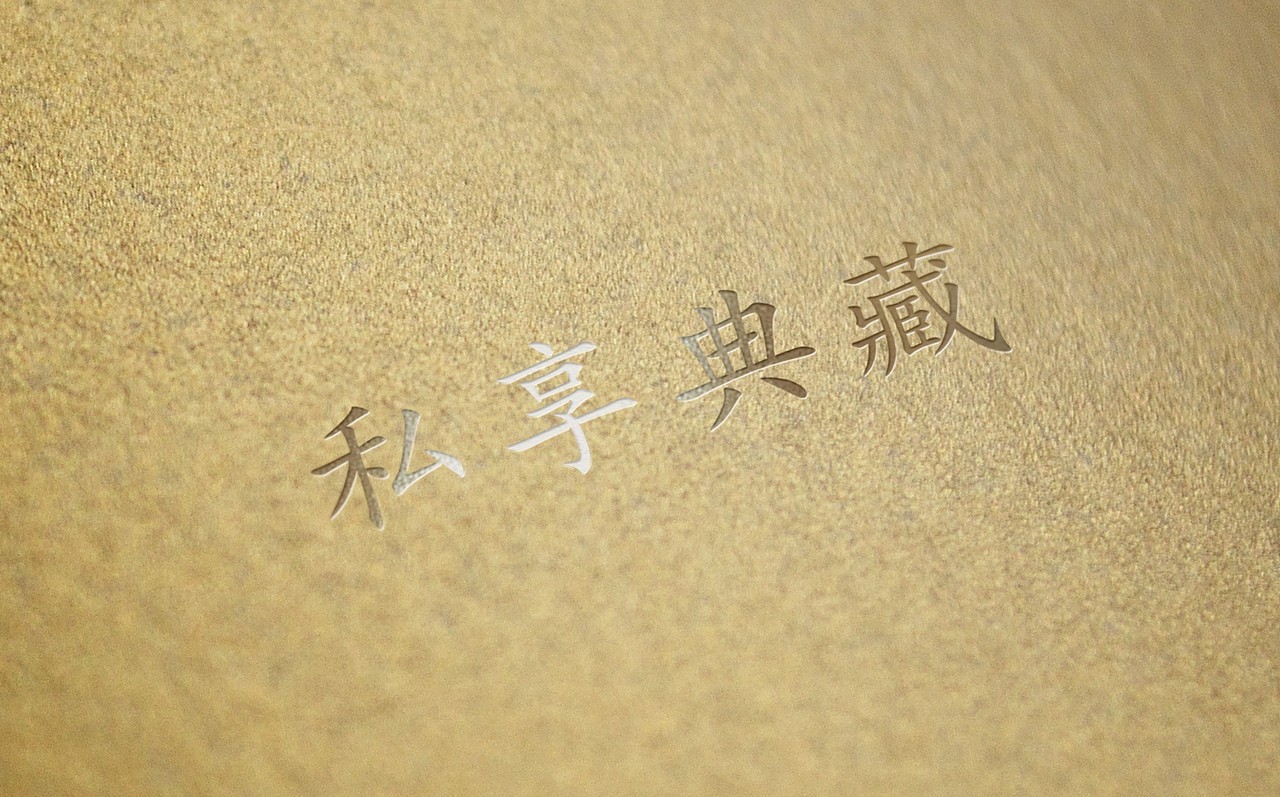 私享典藏